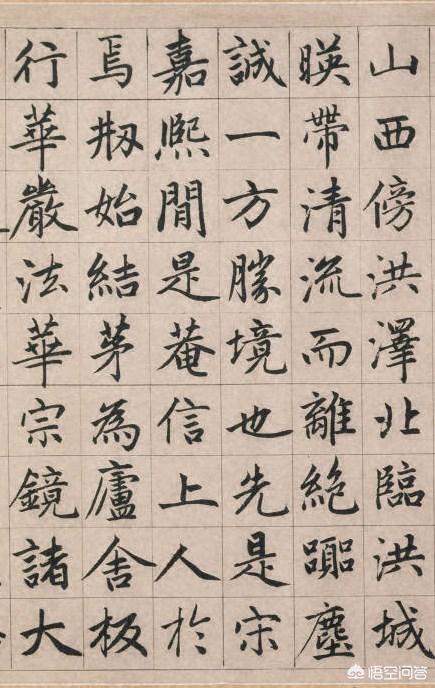 山西傍洪澤北臨洪城
暎帶清流而離絶嚻塵
誠一方勝境也先是宋
嘉熙閒是菴信上人於
焉刱始結茅為廬舍板
行華嚴法華宗鏡諸大
悟空问答